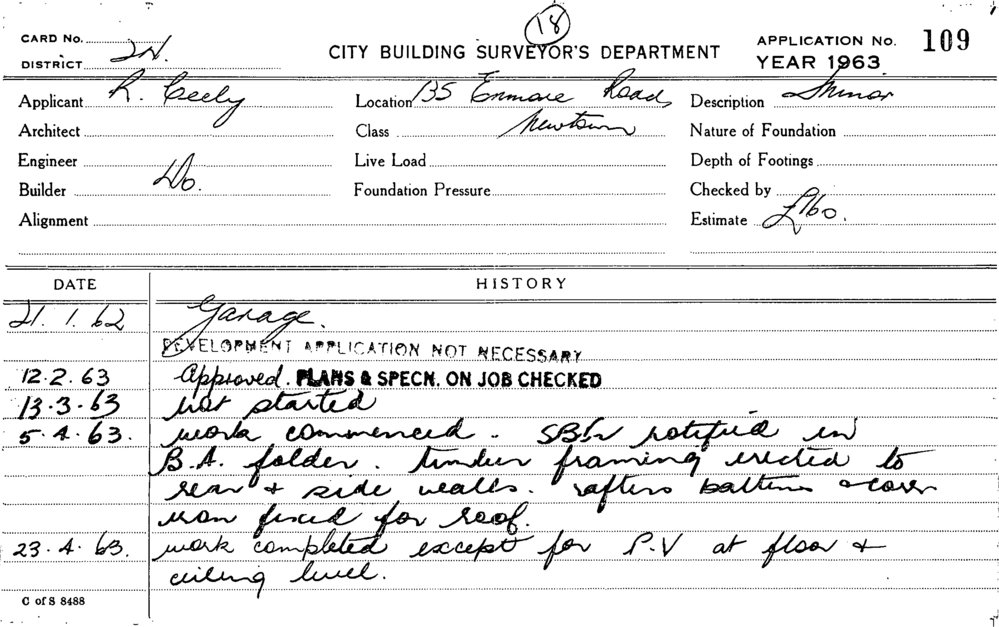 18
CARD No.
DISTRICT 2N.
CITY BUILDING SURVEYOR'S DEPARTMENT
APPLICATION No. 109
YEAR 1963
Applicant R. Ceely
Location 135 Enmore Road,
Description Minor
Architect
Class Newtown
Nature of Foundation
Engineer
Live Load
Depth of Footings
Builder Do.
Foundation Pressure
Checked by
Alignment
Estimate £160.
DATE HISTORY
21.1.62 Garage.
DEVELOPMENT APPLICATION NOT NECESSARY
12.2.63 Approved. PLANS & SPECN. ON JOB CHECKED
13.3.63 not started
5.4.63. work commenced. notified in
B.A. folder. timber framing erected to
rear & side walls. rafters battens & corr
iron fixed for roof.
23.4.63. work completed except for P.V at floor &
ceiling level.
C of S 8488